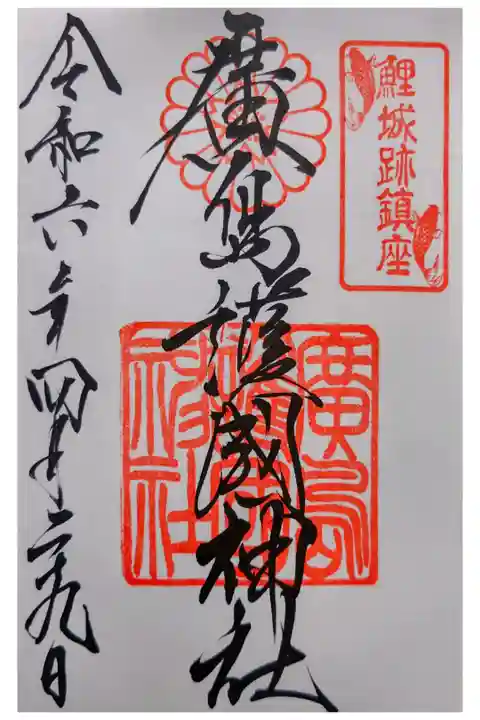 鯉城跡鎮座
廣島護國神社
廣島護國神社
令和六年四月二十九日